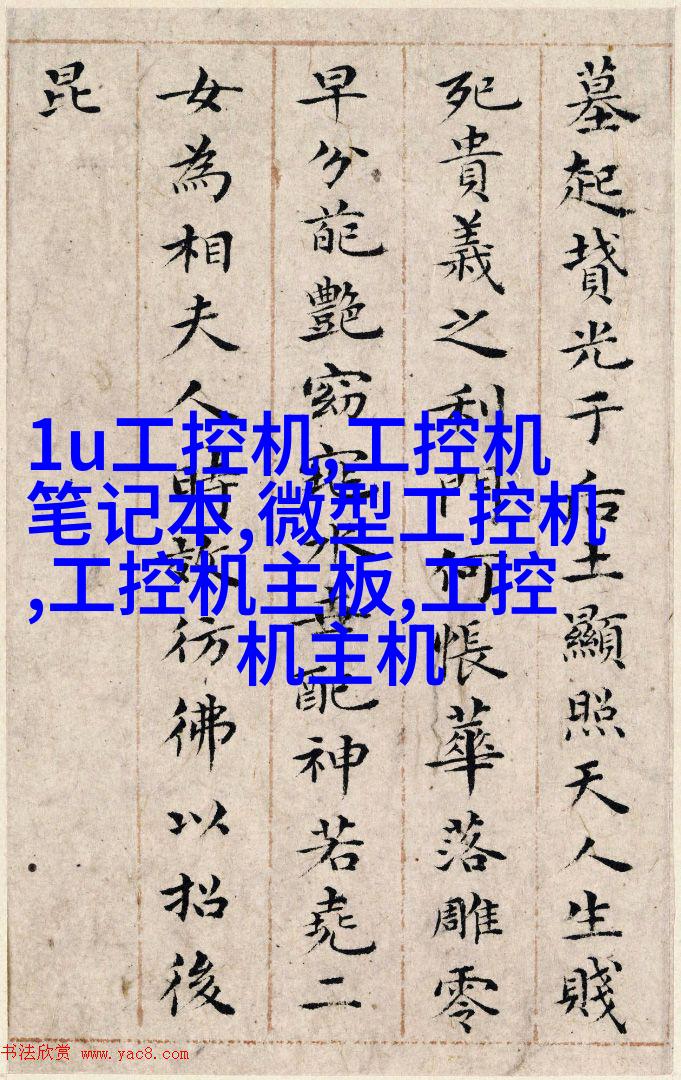 墓起墳光于后土顯照天人生賤
死貴義之利門何悵華落雕零
早分葩艷窈窕永世配神若堯二
女為相夫人時效彷彿以招後
昆
1u工控机,工控机
笔记本,微型工控机
,工控机主板,工控
机主机
书法欣赏 www.yac8.com